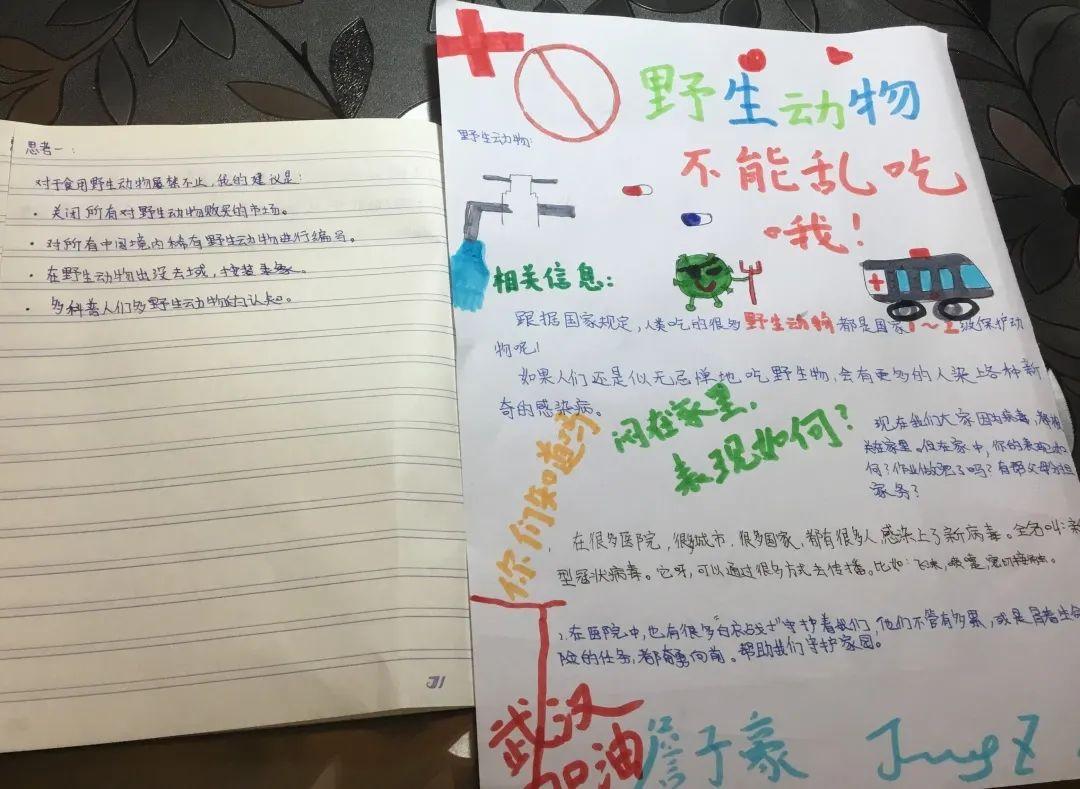 思考一：
对于食用野生动物屡禁不止，我的建议是：
· 关闭所有对野生动物购买的市场。
· 对所有中国境内稀有野生动物进行编号。
· 在野生动物出没去域，
· 多科普人们多野生动物的认知。
野生动物
不能乱吃
哦！
野生动物：
相关信息：
跟据国家规定，人类吃的很多野生动物都是国家1～2级保护动
物呢！
如果人们还是似无忌惮地吃野生物，会有更多的人染上各种新
奇的感染病。
闷在家里，
表现如何？
现在我们大家因为病毒，都
关在家里。但在家中，你的表现如
何？作业做完了吗？有帮父母分担
家务？
你们知道吗
、在很多医院，很多城市，很多国家，都有很多人感染上了新病毒。全名叫：新
型冠状病毒。它呀，可以通过很多方式去传播。比如：飞沫，喷嚏，密切接触。
、在医院中，也有很多“白衣战士”守护着我们，他们不管有多累，或是冒着生命
险的任务，都奋勇向前。帮助我们守护家园。
武汉
加油
詹子豪